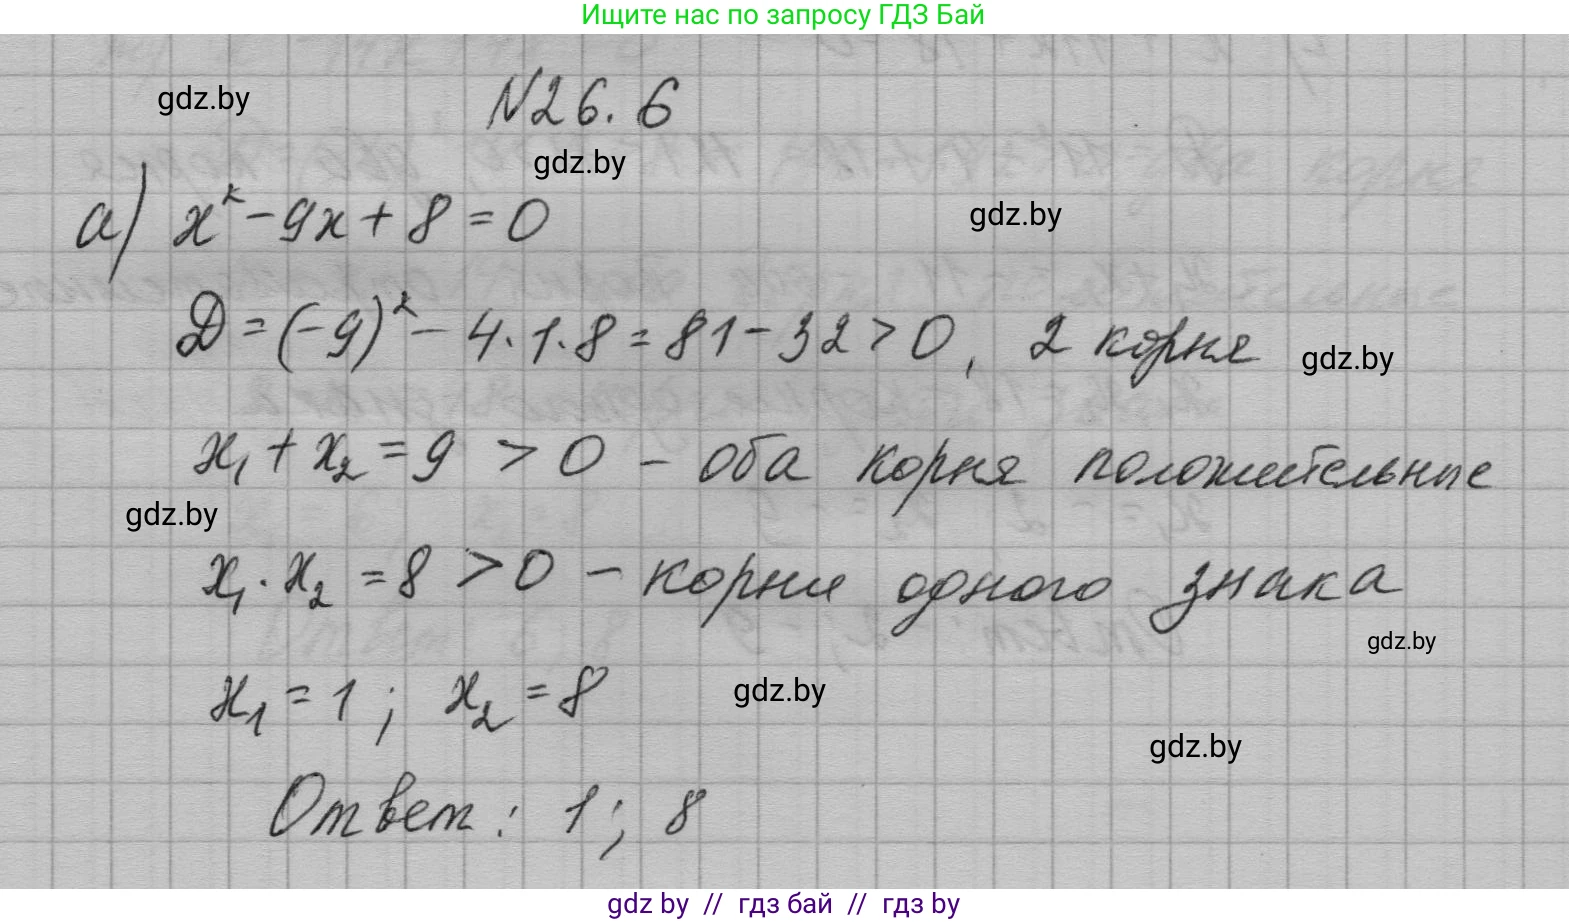 Ищите нас по запросу ГДЗ Бай
gdz.by
N26.6
gdz.by
а) x² - 9x + 8 = 0
gdz.by
Д = (-9)² - 4·1·8 = 81 - 32 > 0, 2 корня
gdz.by
x₁ + x₂ = 9 > 0 - оба корня положительные
gdz.by
x₁ · x₂ = 8 > 0 - корни одного знака
gdz.by
x₁ = 1; x₂ = 8
gdz.by
gdz.by
Ответ: 1; 8
gdz by // гдз бай // гдз by